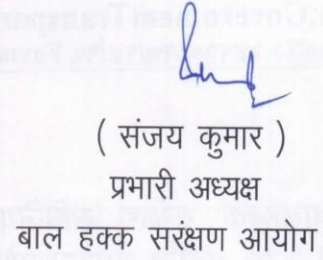 ( संजय कुमार )
प्रभारी अध्यक्ष
बाल हक्क सरंक्षण आयोग